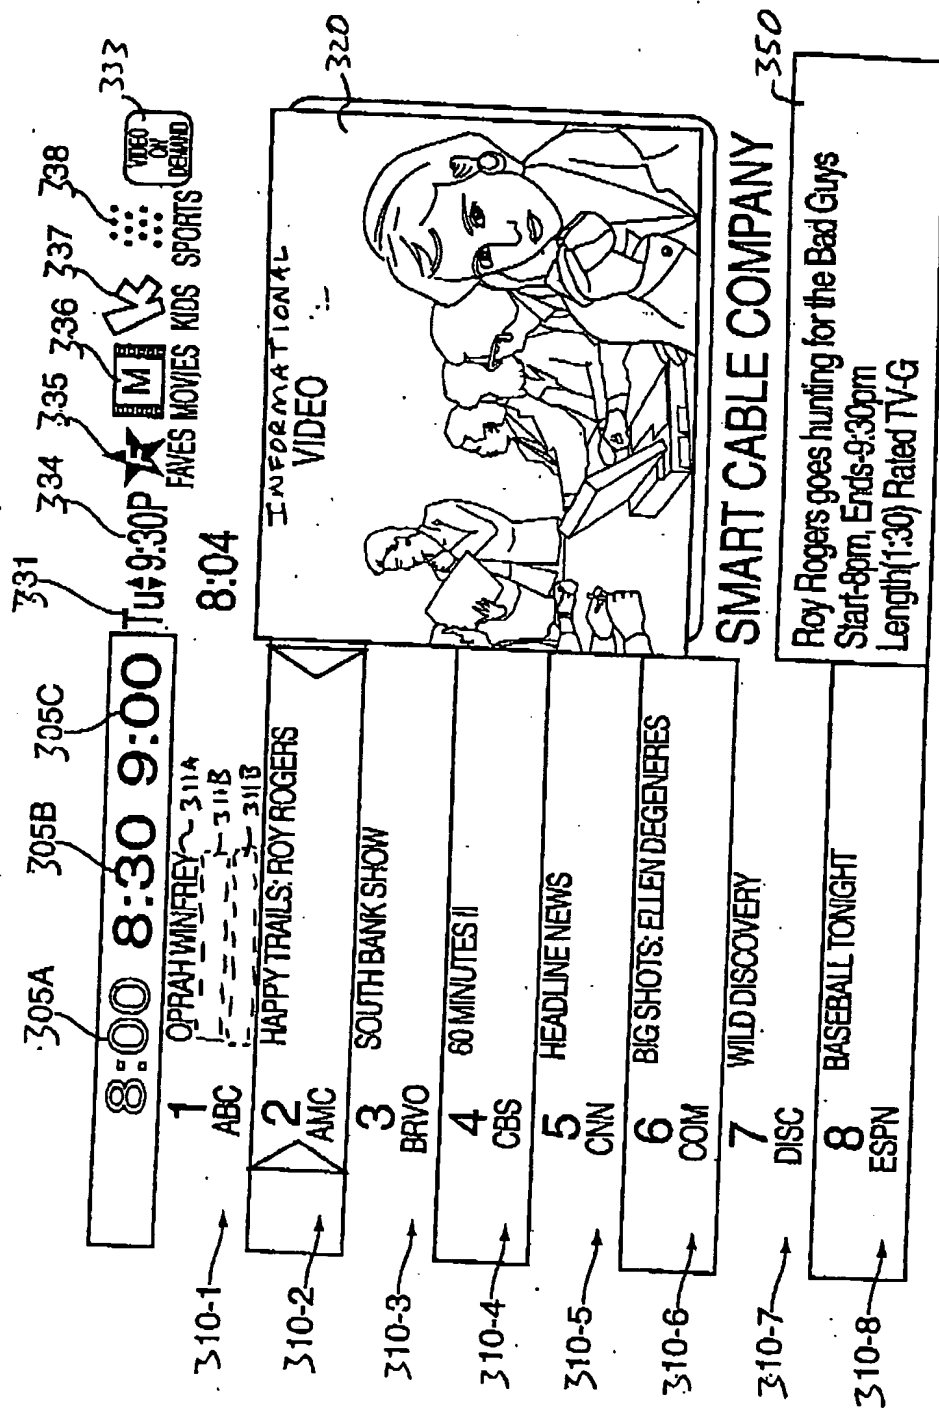 305A
305B
305C
331
334
335
336
337
338
333
8:00 8:30 9:00
Tu 9:30P
F
M
K
VIDEO
ON
DEMAND
FAVES MOVIES KIDS SPORTS
8:04
310-1
1
ABC
OPRAH WINFREY
311A
311B
311B
310-2
2
AMC
HAPPY TRAILS: ROY ROGERS
310-3
3
BRVO
SOUTH BANK SHOW
310-4
4
CBS
60 MINUTES II
310-5
5
CNN
HEADLINE NEWS
310-6
6
COM
BIG SHOTS: ELLEN DEGENERES
310-7
7
DISC
WILD DISCOVERY
310-8
8
ESPN
BASEBALL TONIGHT
INFORMATIONAL
VIDEO
320
SMART CABLE COMPANY
350
Roy Rogers goes hunting for the Bad Guys
Start-8pm, Ends-9:30pm
Length(1:30) Rated TV-G